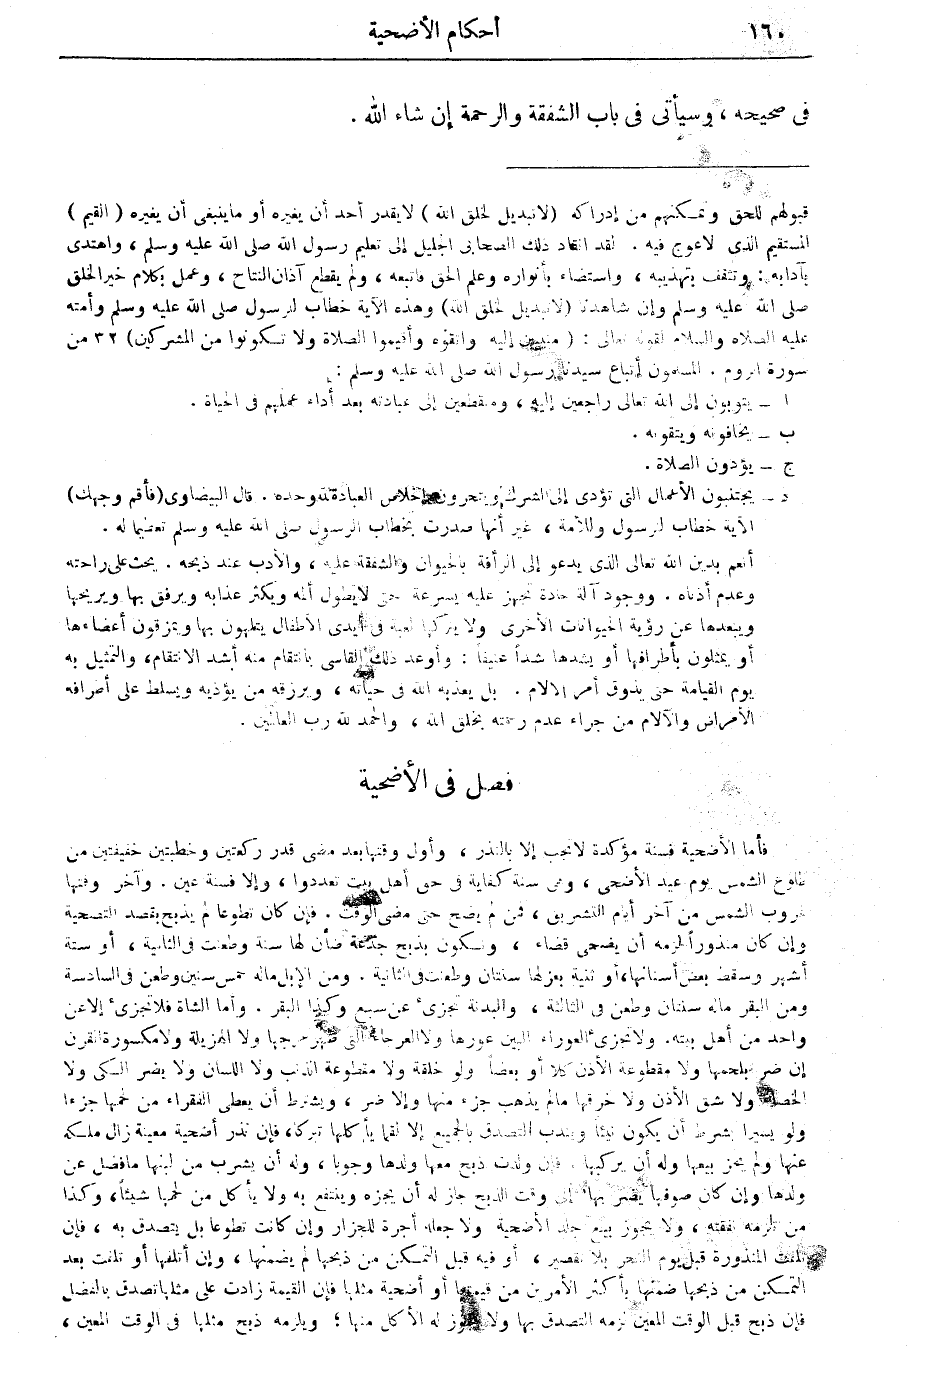 ١٦٠
أحكام الأضحية
فى صحيحه ، وسيأتى فى باب الشفقة والرحمة إن شاء الله .
قبولهم للحق وتمكنهم من إدراكه (لا تبديل لخلق الله ) لايقدر أحد أن يغيره أو ماينبغى أن يغيره ( القيم )
المستقيم الذى لاعوج فيه . لقد انقاد ذلك الصحابى الجليل إلى تعليم رسول الله صلى الله عليه وسلم ، واهتدى
بآدابه : وتثقف بتهذيبه ، واستضاء بأنواره وعلم الحق فاتبعه ، ولم يقطع آذان النتاج ، وعمل بكلام خير الخلق
صلى الله عليه وسلم وإن شاهدنا (لاتبديل لخلق الله) وهذه الآية خطاب لرسول صلى الله عليه وسلم وأمته
عليه الصلاه والسلام لقوله تعالى : ( منيبين إليه واتقوه وأقيموا الصلاة ولا تكونوا من المشركين) ٣٢ من
سورة الروم . المسلمون أتباع سيدنا رسول الله صلى الله عليه وسلم :
ا ــ يتوبون إلى الله تعالى راجعين إليه ، ومنقطعين إلى عبادته بعد أداء عملهم فى الحياة .
ب ــ يخافونه ويتقونه .
ج ــ يؤدون الصلاة .
د ــ يجتنبون الأعمال التى تؤدى إلى الشرك ويتحرون إخلاص العبادة لله وحده . قال البيضاوى (فأقم وجهك)
الآية خطاب لرسول وللأمة ، غير أنها صدرت بخطاب الرسول صلى الله عليه وسلم تعظيما له .
أنعم بدين الله تعالى الذى يدعو إلى الرأفة بالحيوان والشفقة عليه ، والأدب عند ذبحه . يحث على راحته
وعدم أذاه . ووجود آلة حادة تجهز عليه بسرعة حتى لايطول ألمه ويكثر عذابه ويرفق بها ويريحها
ويبعدها عن رؤية الحيوانات الأخرى ولا يتركها لعبة فى أيدى الأطفال يتلهون بها ويمزقون أعضاءها
أو يمثلون بأطرافها أو يشدها شداً عنيفاً : وأوعد ذلك القاسى بانتقام منه أشد الانتقام، والتمثيل به
يوم القيامة حتى يذوق أمر الالام . بل يعذبه الله فى حياته ، ويرزقه من يؤذيه ويسلط على أطرافه
الأمراض والآلام من جراء عدم رحمته بخلق الله ، والحمد لله رب العالمين .
فصل فى الأضحية
فأما الأضحية فسنة مؤكدة لاتجب إلا بالنذر ، وأول وقتها بعد مضى قدر ركعتين وخطبتين خفيفتين من
طلوع الشمس يوم عيد الأضحى ، وهى سنة كفاية فى حق أهل بيت تعددوا ، وإلا فسنة عين . وآخر وقتها
غروب الشمس من آخر أيام التشريق ، فمن لم يضح حتى مضى الوقت . فإن كان تطوعا لم يذبح بقصد التضحية
وإن كان منذوراً لزمه أن يضحى قضاء ، وتكون بذبح جذعة ضأن لها سنة وطعنت فى الثانية ، أو ستة
أشهر وسقط بعض أسنانها، أو ثنية بعزلها سنتان وطعنت فى الثانية . ومن الإبل ماله خمس سنين وطعن فى السادسة
ومن البقر ماله سنتان وطعن فى الثالثة ، والبدنة تجزىء عن سبع وكذا البقر . وأما الشاة فلا تجزىء إلا عن
واحد من أهل بيته. ولا تجزىء العوراء البين عورها ولا العرجاء التى ظهر عرجها ولا الهزيلة ولا مكسورة القرن
إن ضر بلحمها ولا مقطوعة الأذن كلا أو بعضاً ولو خلقة ولا مقطوعة الذنب ولا اللسان ولا يضر الكى ولا
ولا شق الأذن ولا خرقها مالم يذهب جزء منها وإلا ضر ، ويشترط أن يعطى الفقراء من لحمها جزءا
ولو يسيرا بشرط أن يكون نيئاً ويندب التصدق بالجميع إلا لقما يأكلها تبركا، فإن نذر أضحية معينة زال ملكه
عنها ولم يجز بيعها وله أن يركبها . فإن ولدت ذبح معها ولدها وجوبا ، وله أن يشرب من لبنها مافضل عن
ولدها وإن كان صوفها يضر بها إلى وقت الذبح جاز له أن يجزه وينتفع به ولا يأكل من لحمها شيئاً، وكذا
من تلزمه نفقته ، ولا يجوز بيع جلد الأضحية ولا جعله أجرة للجزار وإن كانت تطوعا بل يتصدق به ، فإن
تلفت المنذورة قبل يوم النحر بلا تقصير ، أو فيه قبل التمكن من ذبحها لم يضمنها ، وإن أتلفها أو تلفت بعد
التمكن من ذبحها ضمنها بأكثر الأمرين من قيمتها أو أضحية مثلها فإن القيمة زادت على مثلها تصدق بالفضل
فإن ذبح قبل الوقت المعين لزمه التصدق بها ولا يجوز له الأكل منها ؛ ويلزمه ذبح مثلها فى الوقت المعين ،